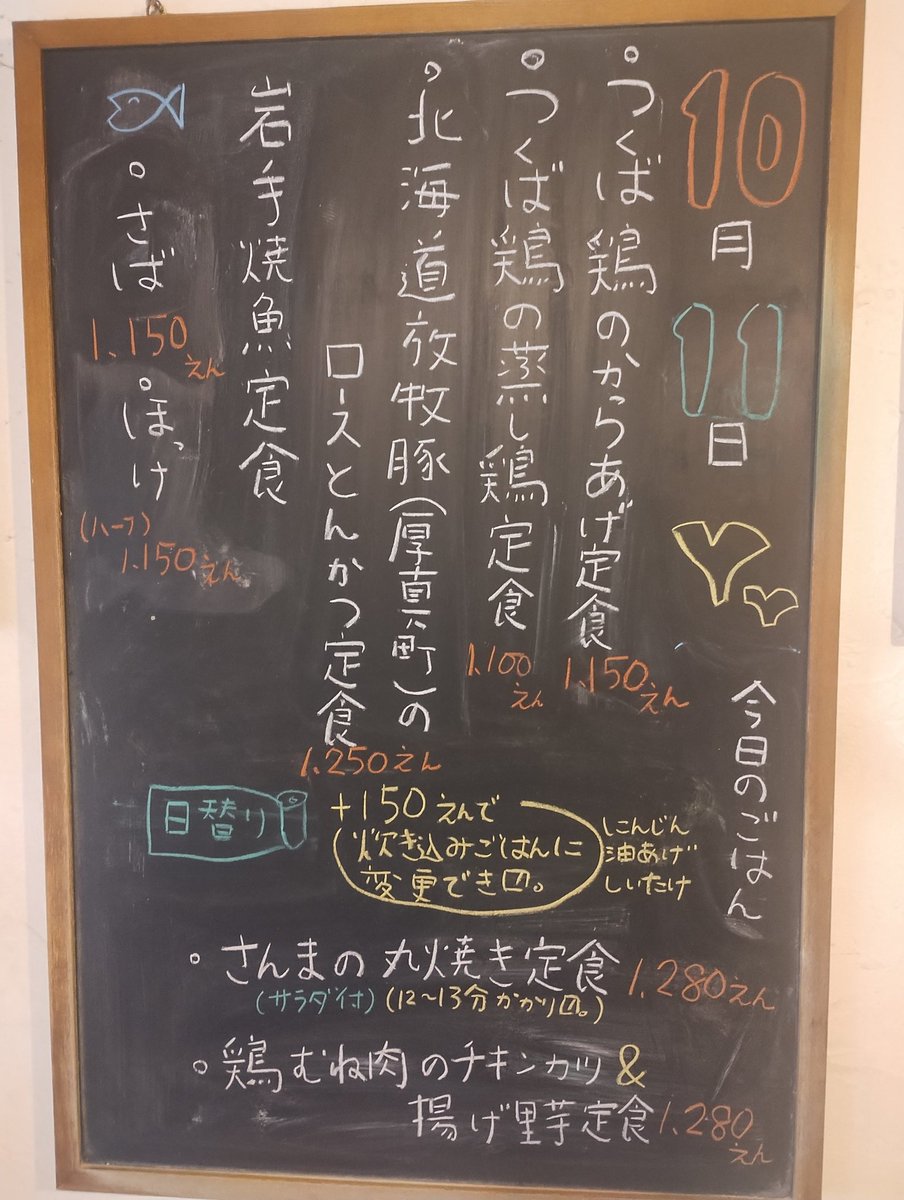 10
月
11
日
今日のごはん
。つくば鶏のからあげ定食
1.150えん
。つくば鶏の蒸し鶏定食
1.100えん
。北海道放牧豚(厚真町)の
ロースとんかつ定食
1.250えん
岩手焼魚定食
。さば
1.150えん
。ほっけ
(ハーフ)
1.150えん
+150えんで
炊き込みごはんに
変更でき〼。
にんじん
油あげ
しいたけ
日替り
。さんまの丸焼き定食 1.280えん
(サラダ付)(12〜13分かかり〼。)
。鶏むね肉のチキンカツ&
揚げ里芋定食 1.280えん